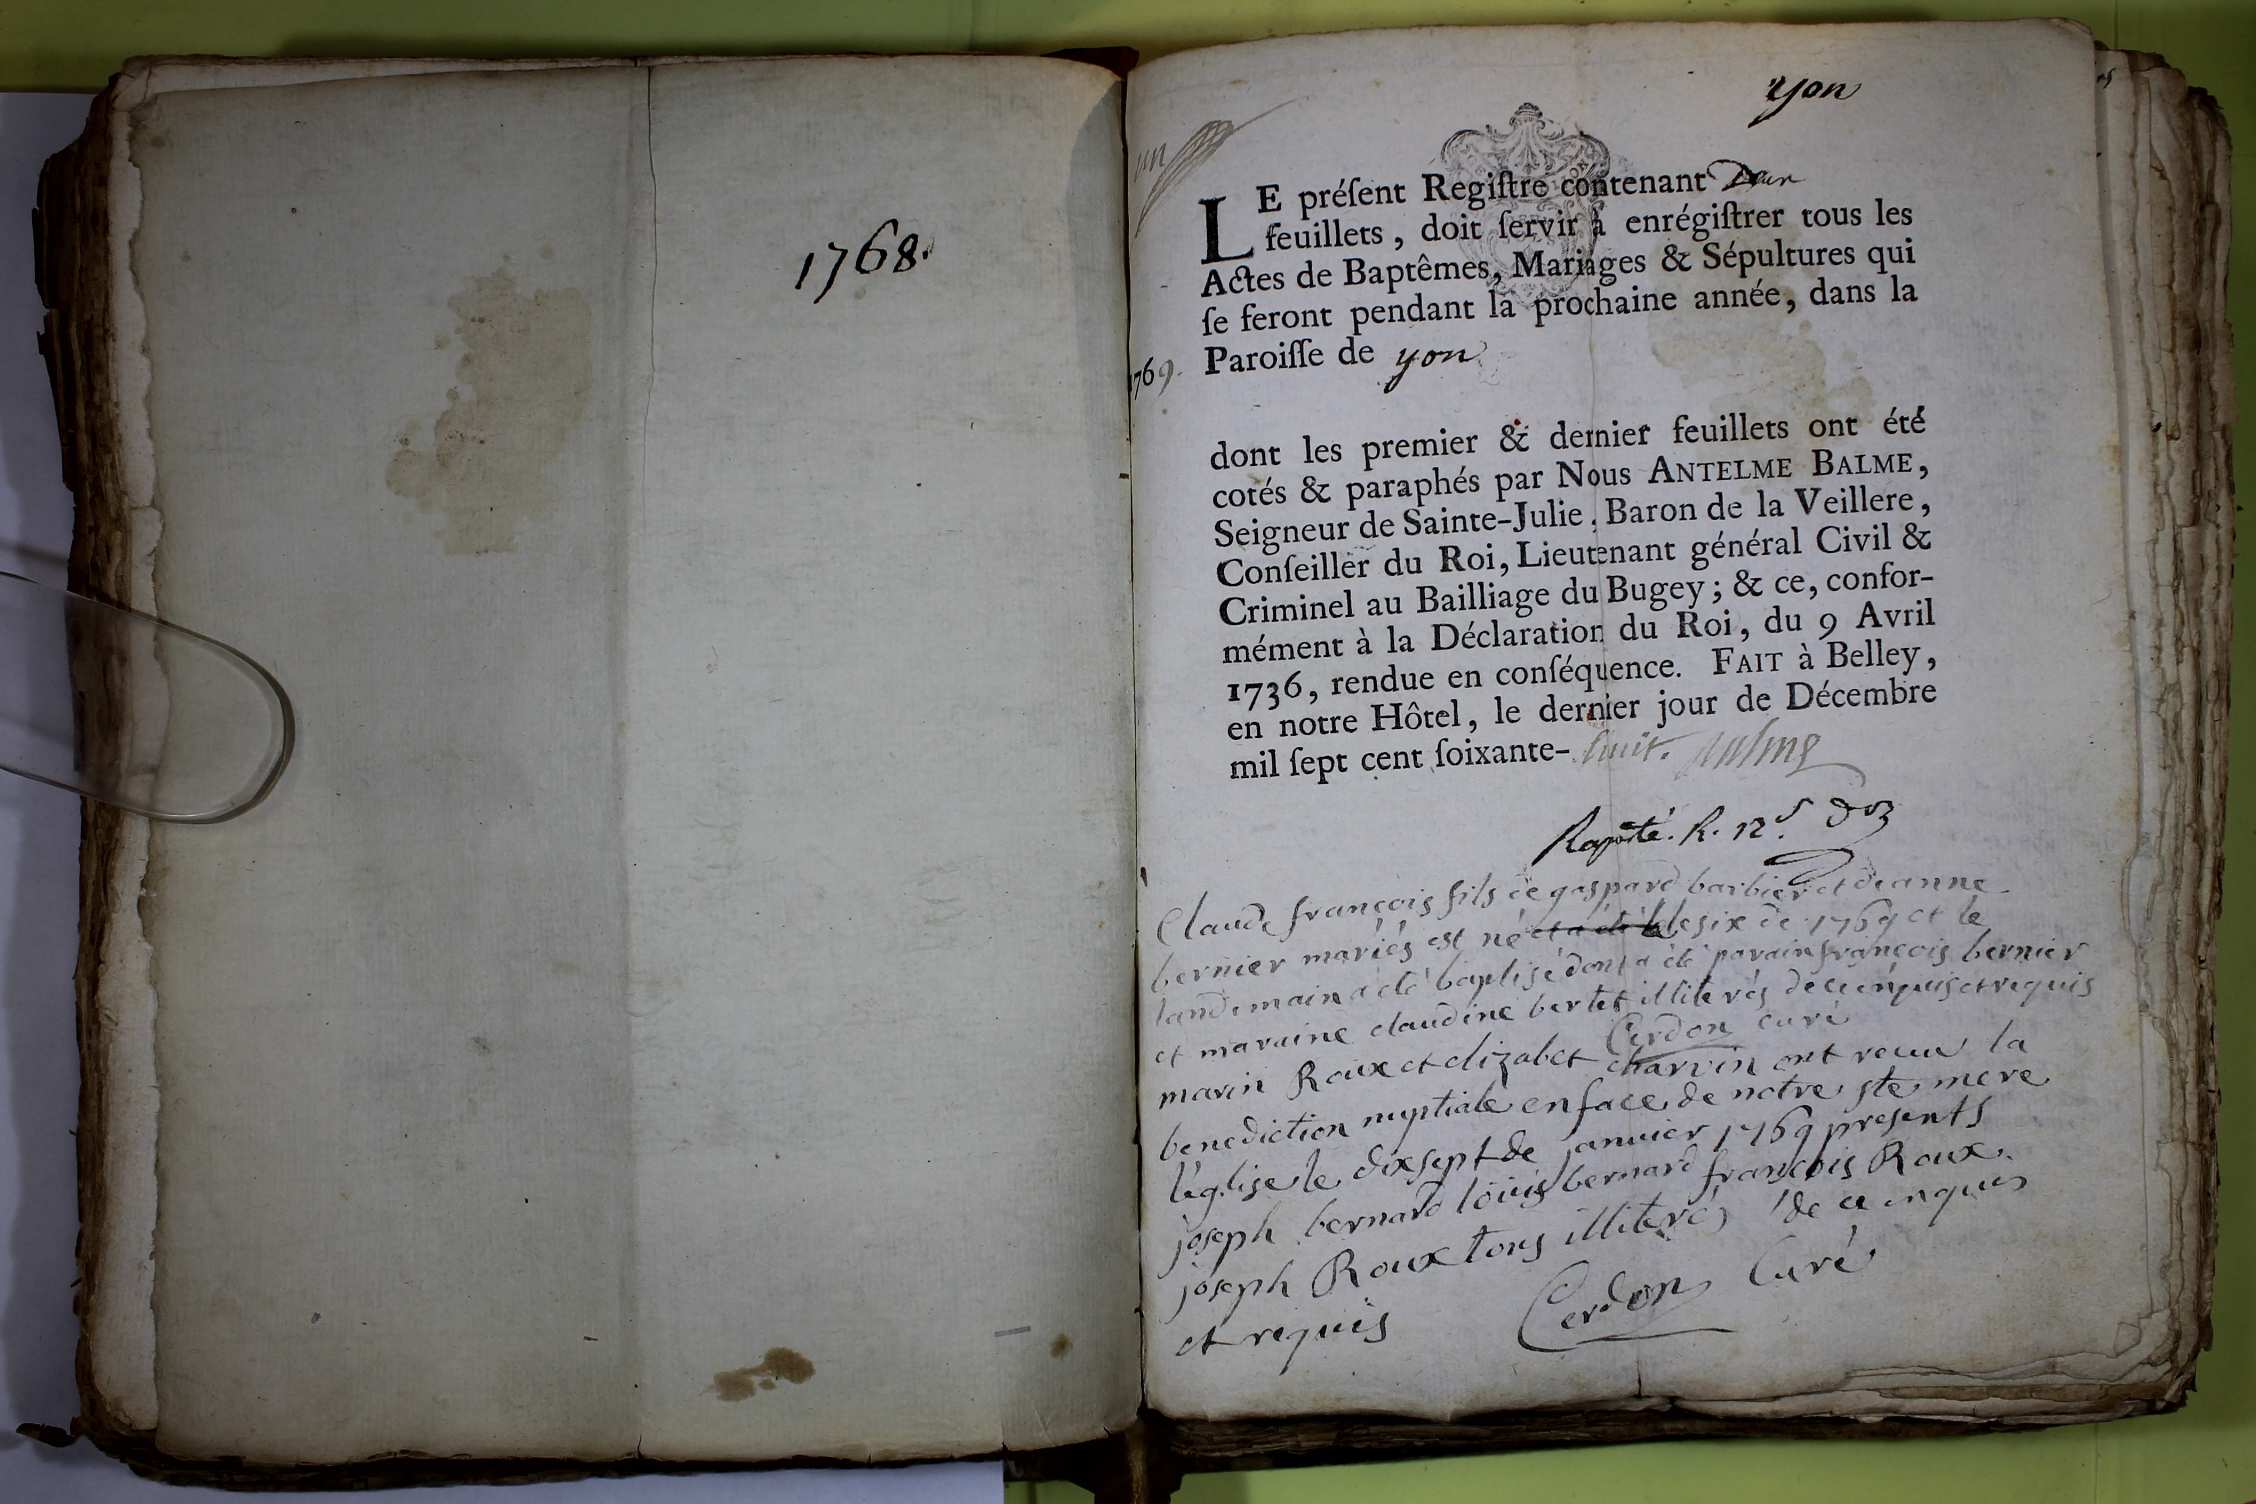 1768.
yon
un
LE préſent Regiſtre contenant Deux
feuillets, doit ſervir à enrégiſtrer tous les
Actes de Baptêmes, Mariages & Sépultures qui
ſe feront pendant la prochaine année, dans la
1769.
Paroiſſe de yon
dont les premier & dernier feuillets ont été
cotés & paraphés par Nous ANTELME BALME,
Seigneur de Sainte-Julie, Baron de la Veillere,
Conſeiller du Roi, Lieutenant général Civil &
Criminel au Bailliage du Bugey; & ce, confor-
mément à la Déclaration du Roi, du 9 Avril
1736, rendue en conſéquence. FAIT à Belley,
en notre Hôtel, le dernier jour de Décembre
mil ſept cent ſoixante-huit. Balme
R. 12
Claude françois fils de gaspard barbier et de anne
bernier mariés est né et a été le le six de 1769 et le
landemain a été baptisé dont a été parain françois bernier
et maraine claudine bertet illiterés de ce enquis et requis
Cerdon curé
marin Roux et elizabet charvin ont recue la
benediction nuptiale en face de notre ste mere
l'eglise le dixsept de janvier 1769 presents
joseph bernard loüis bernard françois Roux
joseph Roux tous illiterés de ce enquis
et requis Cerdon Curé